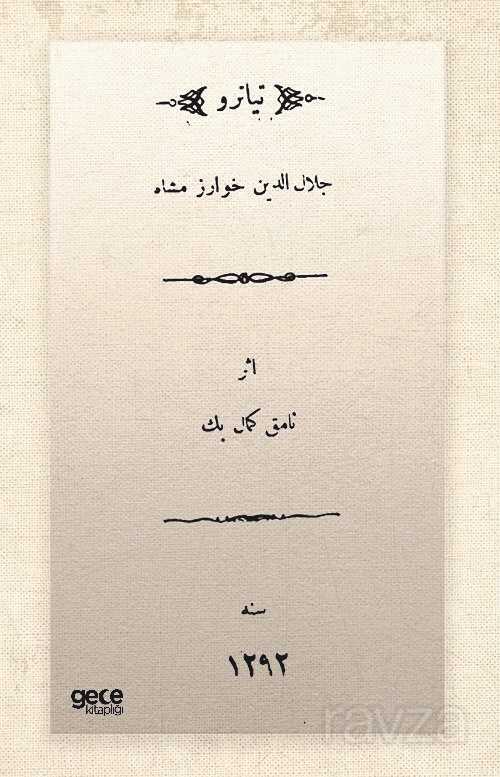 تياترو
جلال الدين خوارزمشاه
اثر
نامق كمال بك
سنه
١٢٩٢
gece
kitaplığı
ravza